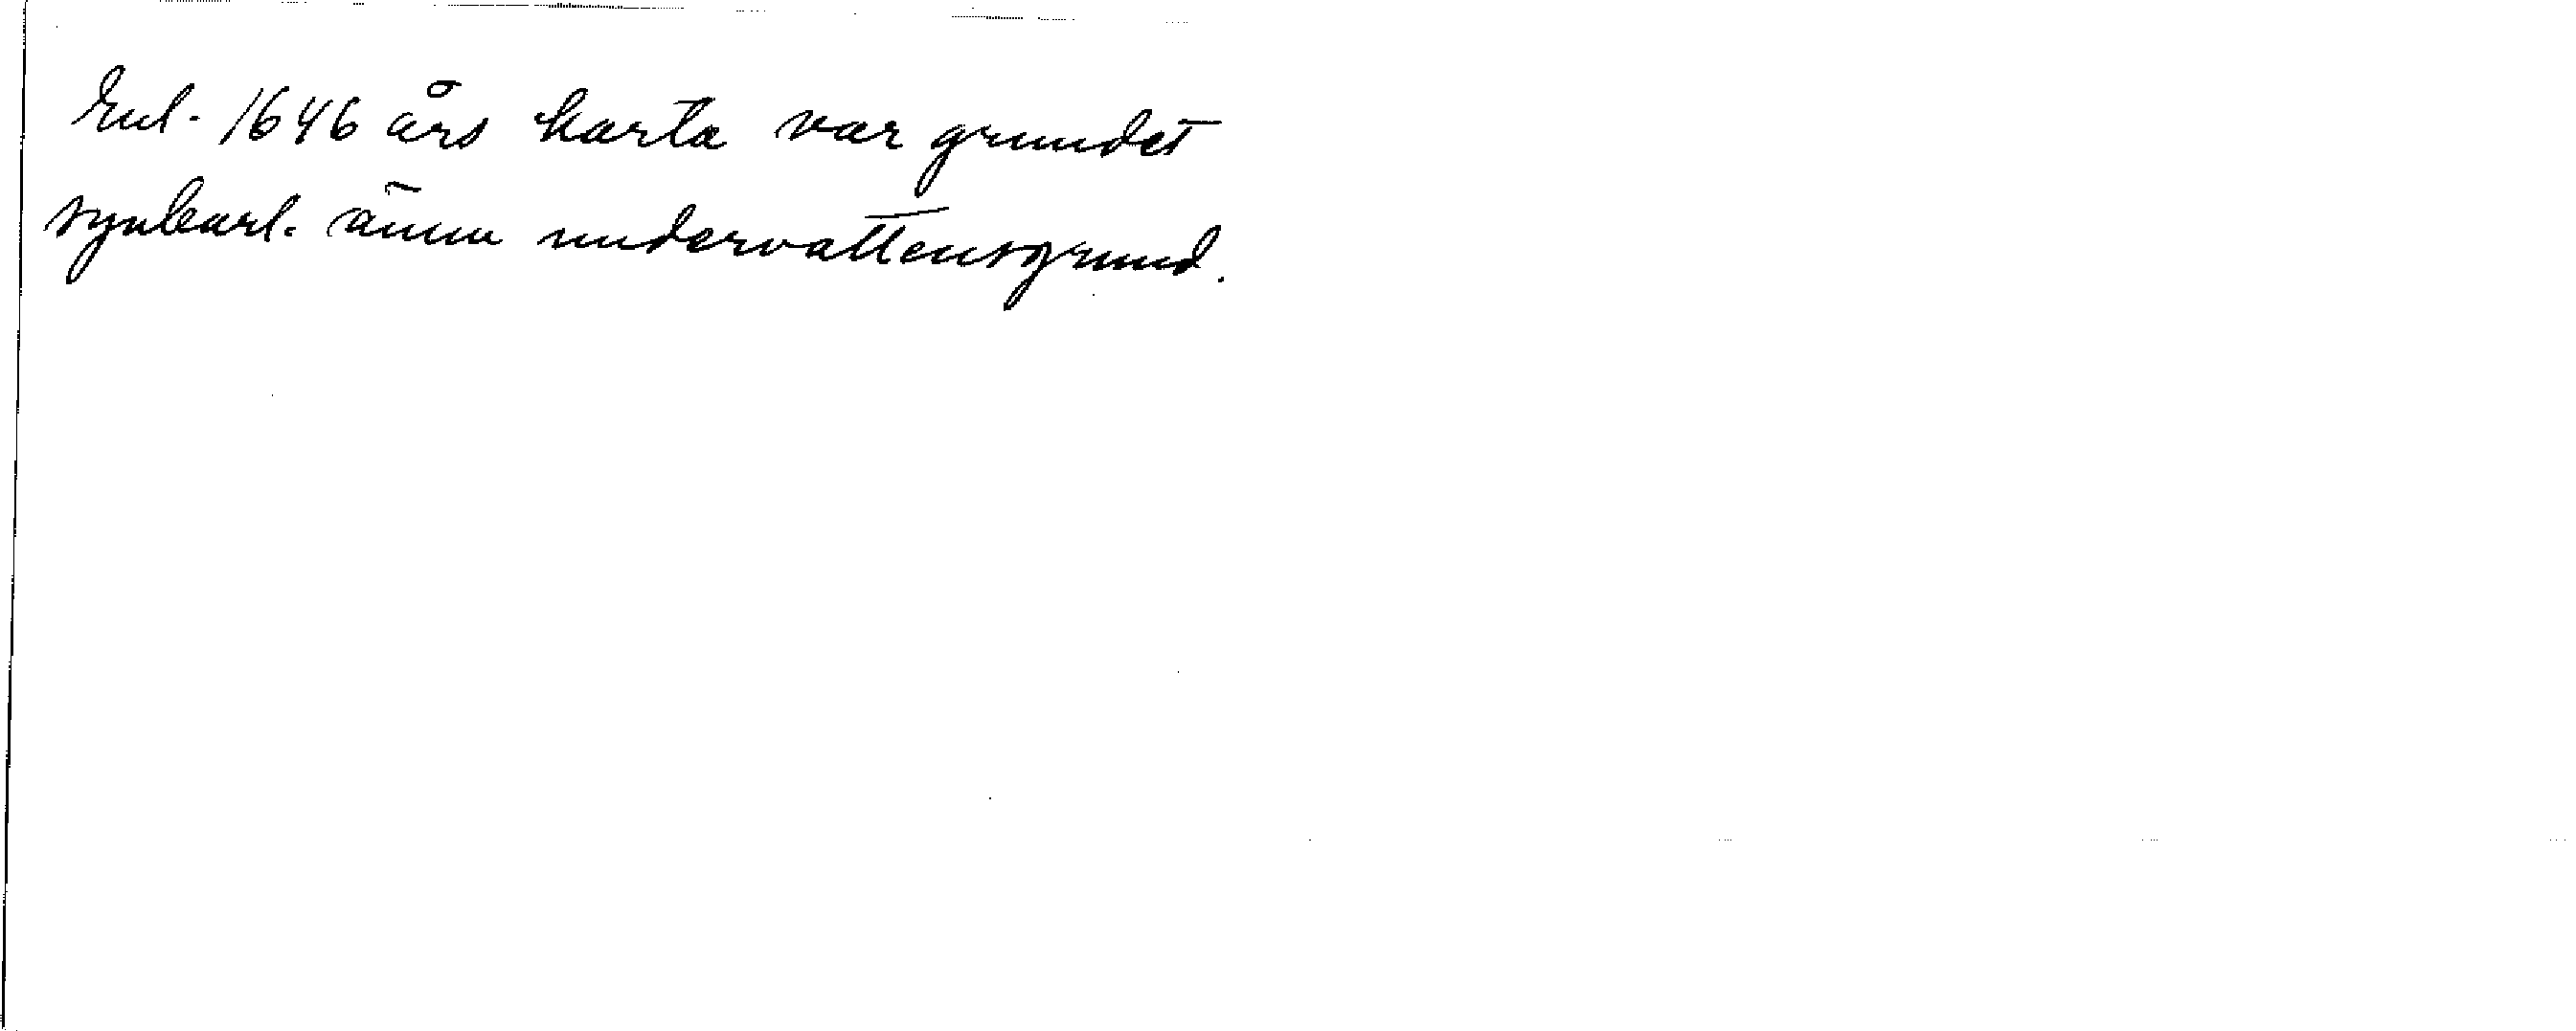 Enl. 1646 års karta var grundet
synbarl. ännu undervattensgrund.